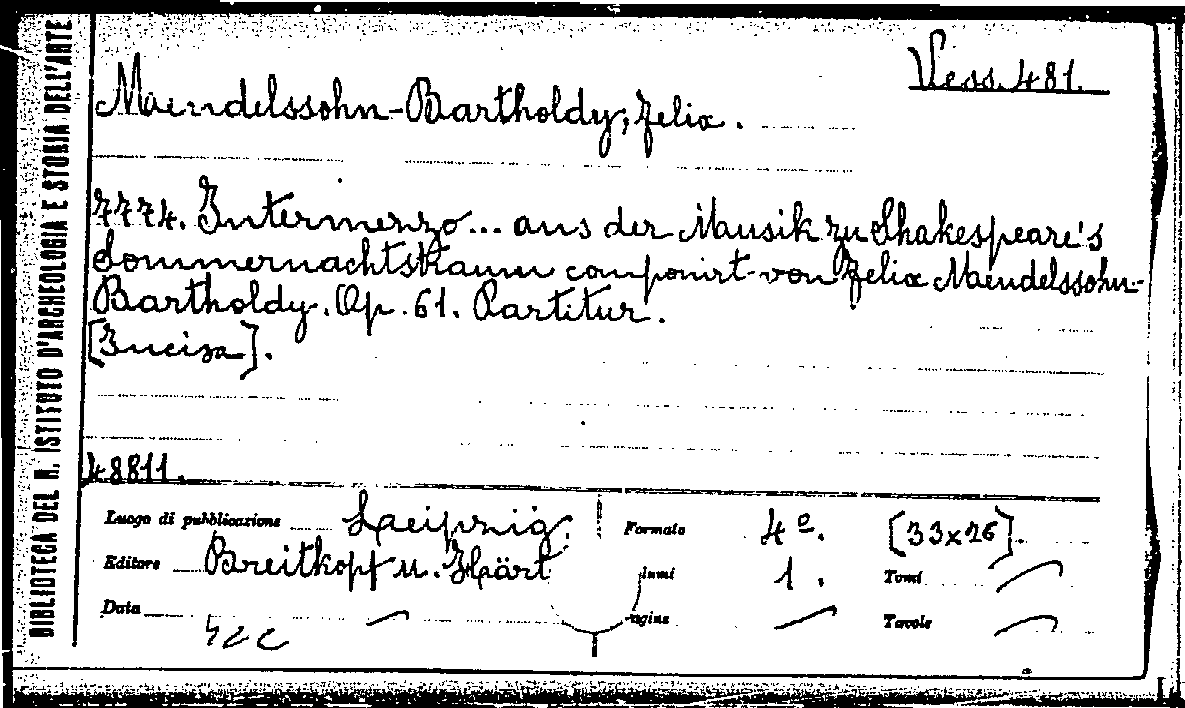 BIBLIOTECA DEL R. ISTITUTO D'ARCHEOLOGIA E STORIA DELL'ARTE
Vess. 481.
Mendelssohn-Bartholdy, Felix.
7774. Intermezzo... aus der Musik zu Shakespeare's
Sommernachtstraum componirt von Felix Mendelssohn-
Bartholdy. Op. 61. Partitur.
[Incisa].
48811.
Luogo di pubblicazione Leipzig. Formato 4º. [33x26].
Editore Breitkopf u. Härt lumi 1. Tomi
Data agine Tavole